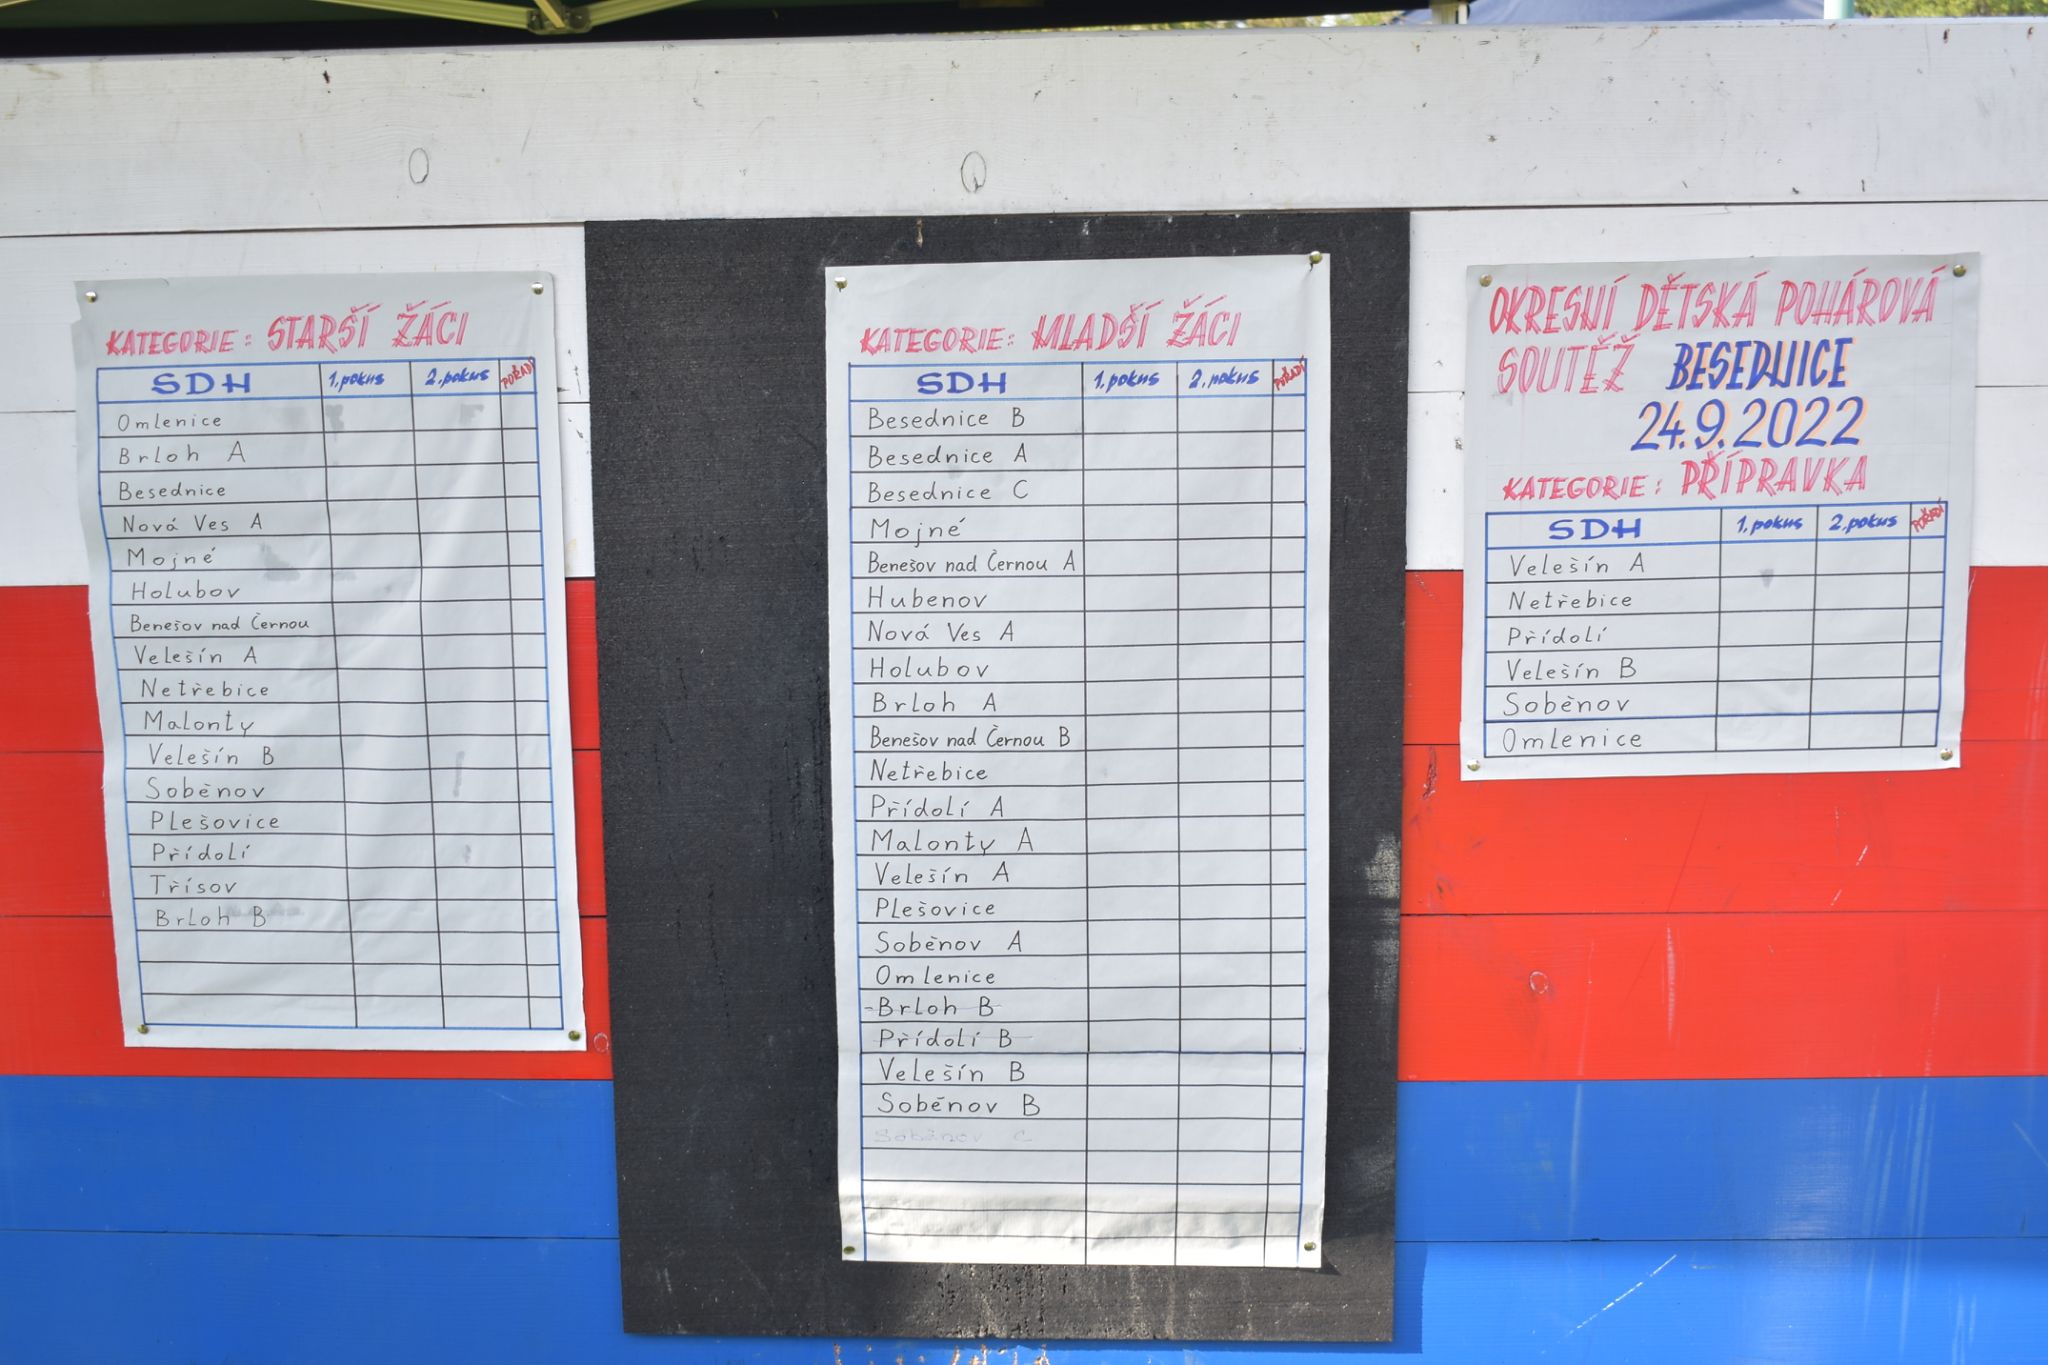 KATEGORIE: STARŠÍ ŽÁCI
SDH 1. pokus 2. pokus POŘADÍ
Omlenice
Brloh A
Besednice
Nová Ves A
Mojné
Holubov
Benešov nad Černou
Velešín A
Netřebice
Malonty
Velešín B
Soběnov
Plešovice
Přídolí
Třísov
Brloh B
KATEGORIE: MLADŠÍ ŽÁCI
SDH 1. pokus 2. pokus POŘADÍ
Besednice B
Besednice A
Besednice C
Mojné
Benešov nad Černou A
Hubenov
Nová Ves A
Holubov
Brloh A
Benešov nad Černou B
Netřebice
Přídolí A
Malonty A
Velešín A
Plešovice
Soběnov A
Omlenice
Brloh B
Přídolí B
Velešín B
Soběnov B
Soběnov C
OKRESNÍ DĚTSKÁ POHÁROVÁ
SOUTĚŽ BESEDNICE
24.9.2022
KATEGORIE: PŘÍPRAVKA
SDH 1. pokus 2. pokus POŘADÍ
Velešín A
Netřebice
Přídolí
Velešín B
Soběnov
Omlenice